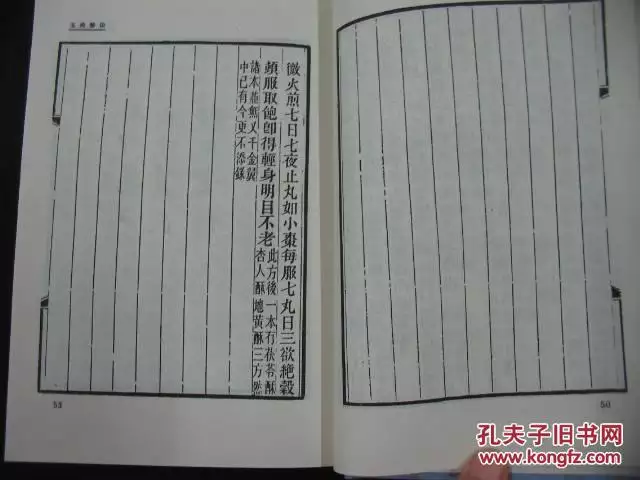 微火煎七日七夜止丸如小棗每服七丸日三欲絶穀
頓服取飽即得輕身明目不老此方後一本有茯苓酥
杏人酥地黃酥三方然
諸本並無又千金翼
中已有今更不添錄
53
50
孔夫子旧书网
www.kongfz.com